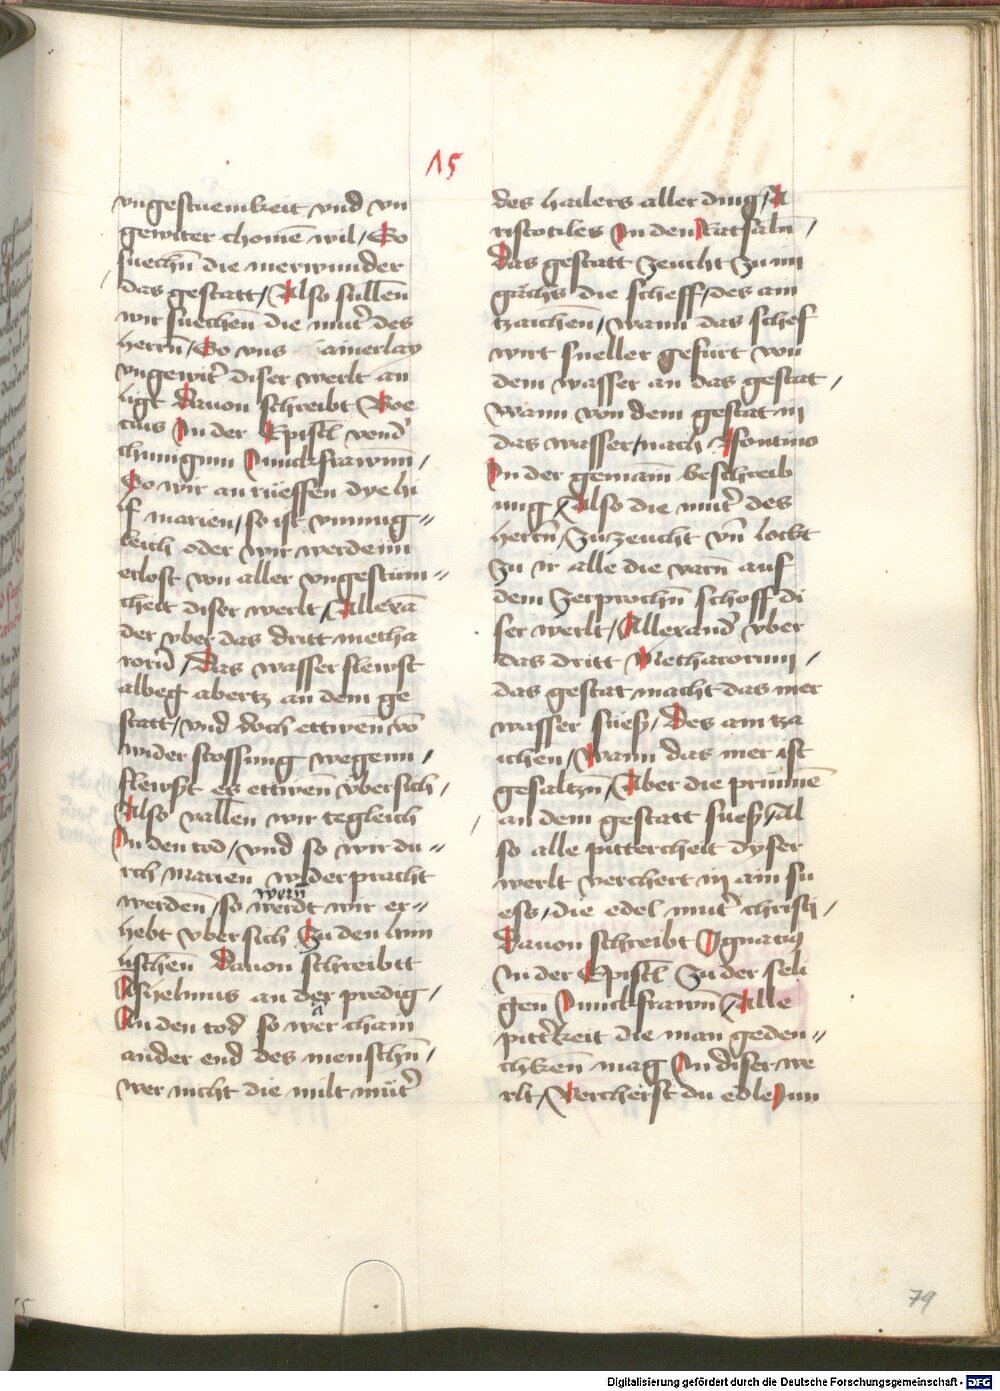 15
vngestuemkeit vnd vn
gewiter chomē wil / So
suechn̄ die merwunder
das gestatt / Also sullen
wir suechen̄ die mut̄ des
herrn̄ / So vns ainerlay
vngewit̄ diser werlt an
ligt Dauon schreibt Boe
cius In der Epistl von d̄
chunigim Junckfrawnn /
So wir an rüeffen dye hi
lf marien / so ist vnmug〃
leich oder wir werdenn
erlost von aller vngestum〃
cheit diser werlt / Allexā
der vber das dritt metha
rorū / Das wasser flewst
albeg abertz an dem ge
statt / vnd doch ettwen̄ vō
wider stossung wegenn /
flewst es ettwen̄ vbersich /
Also vallen wir tegleich
In den tod / vnd so wir du〃
rch marien wider pracht
werden / so werdt wir er〃
wern̄
hebt vbersich Zu den him
lischen̄ Dauon schreibtt
Ashelmus an der predig /
In den tod so wer cham
a
ander end des menschn̄ /
wer nicht die milt mut̄
des hailers aller ding / A
ristotiles In den Ratsaln̄ /
Das gestatt zeucht zu im
gächs die scheff / des ain
tzaichen̄ / wann das schef
wirt sneller gefürt von
dem wasser an das gestat /
wann von dem gestat in
das wasser / nach Isontino
In der gemaim̄ beschreib
ung / Also die mut̄ des
herrn̄ / Zuzeucht vn̄ lockt
zu ir alle die varn̄ auf
dem zerprochn̄ schoff di
ser werlt / Allexand̄ vber
das dritt Metharorum /
das gestat macht das mer
wasser süess / Des ain tza
ichen / Wann das mer ist
gesaltzn̄ / Aber die prunnē
an dem gestatt suess / Al
so alle pittercheit dyser
werlt verchert in ain su
ess / die edel mut̄ christi /
Dauon schreibt Ignatius
In der Epistl Zu der seli
gen Junckfrawn̄ / Alle
pitt̄keit die man geden〃
chken̄ mag In diser we
rlt / Vercherst du edle Jun
79
Digitalisierung gefördert durch die Deutsche Forschungsgemeinschaft - DFG